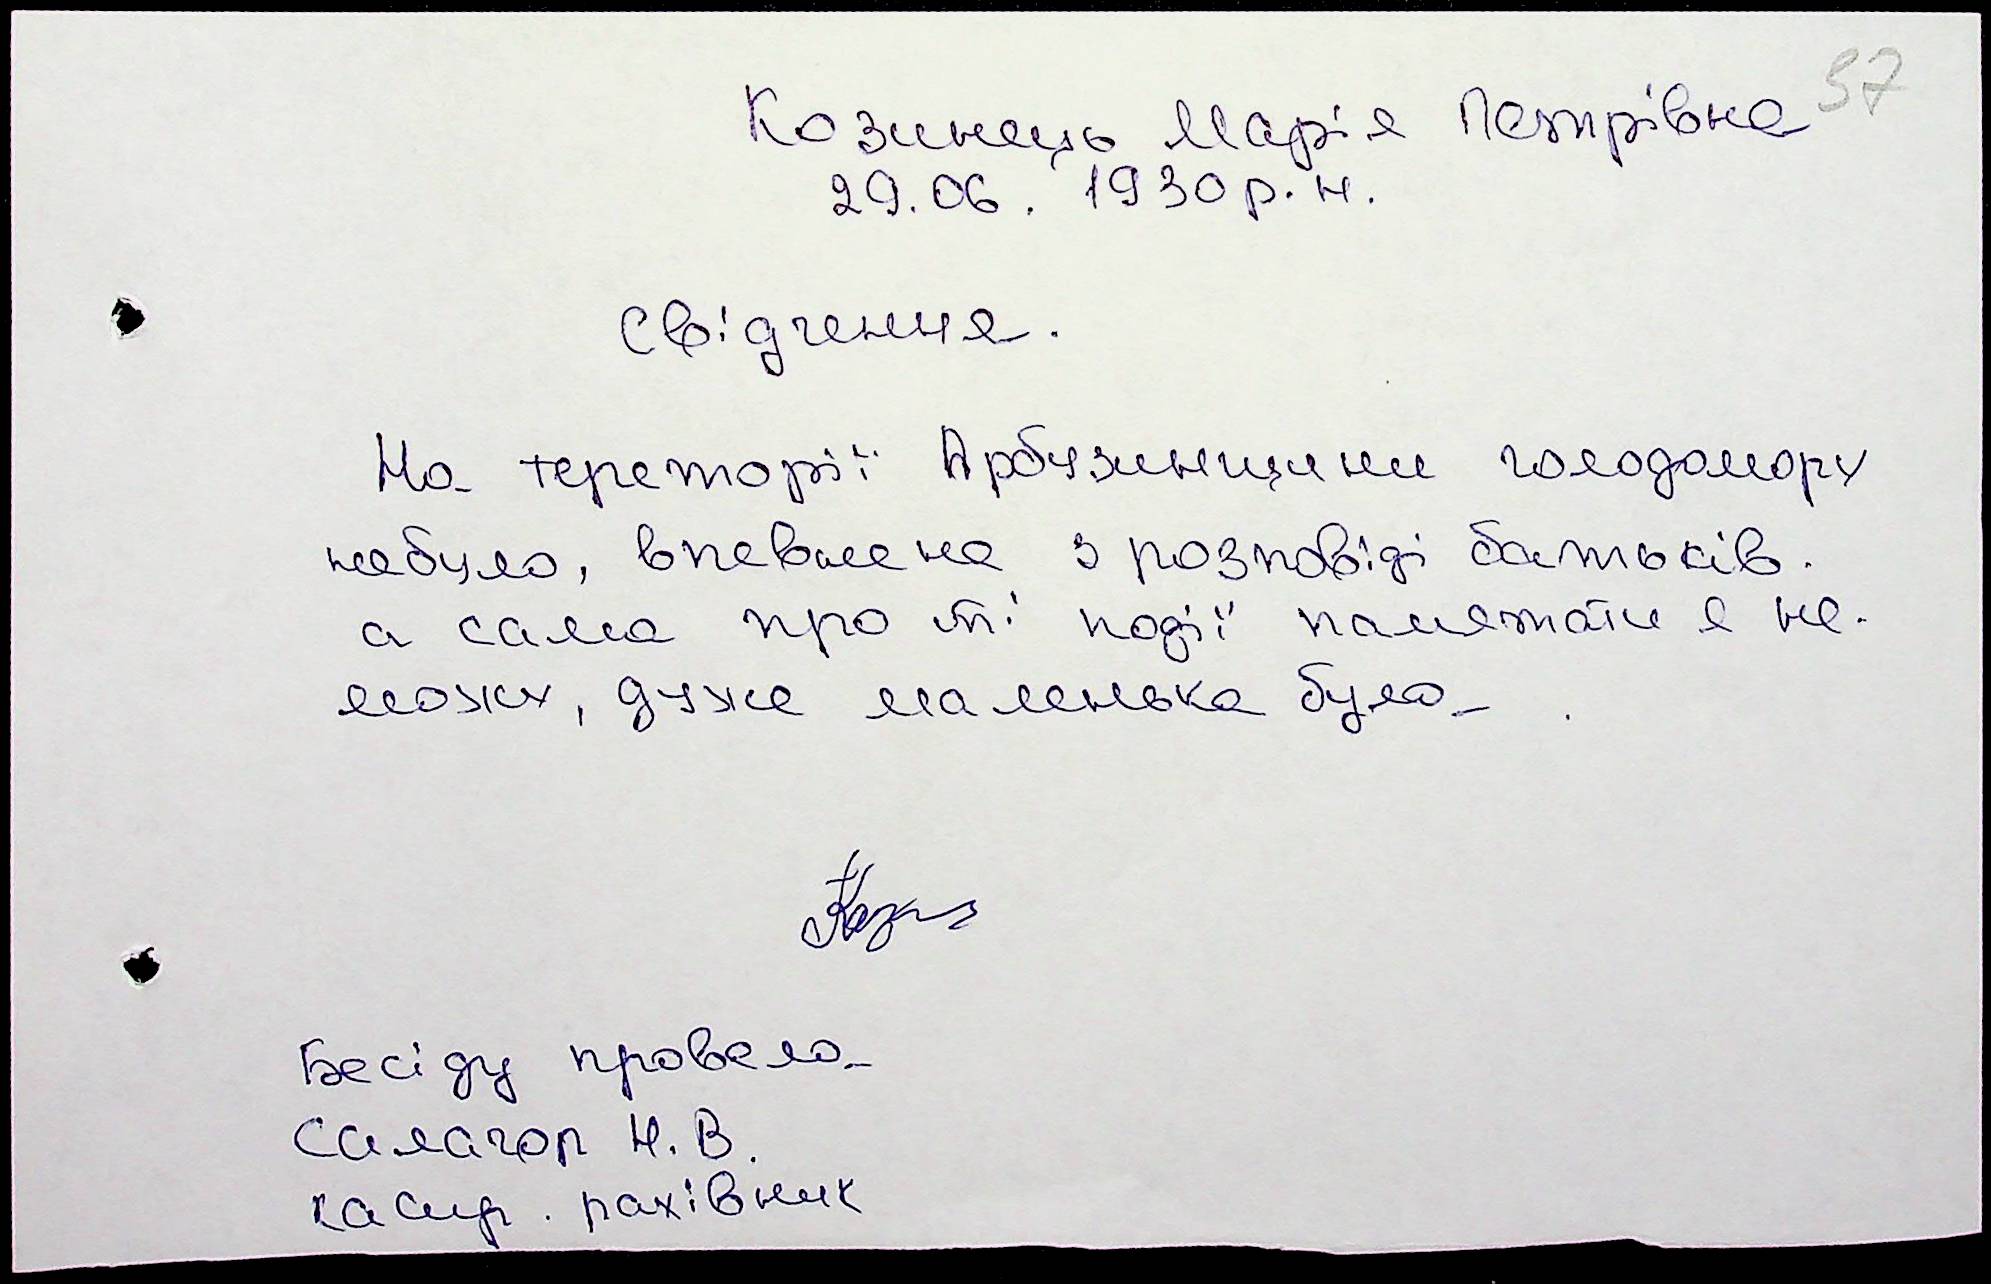 57
Козинець Марія Петрівна
29.06. 1930 р. н.
Свідчення.
На тереторії Арбузинщини голодомору
небуло, впевнена з розповіді батьків.
а сама про ті події памятати я не-
можу, дуже маленька була.
Бесіду провела
Салагор Н. В.
касир. рахівник